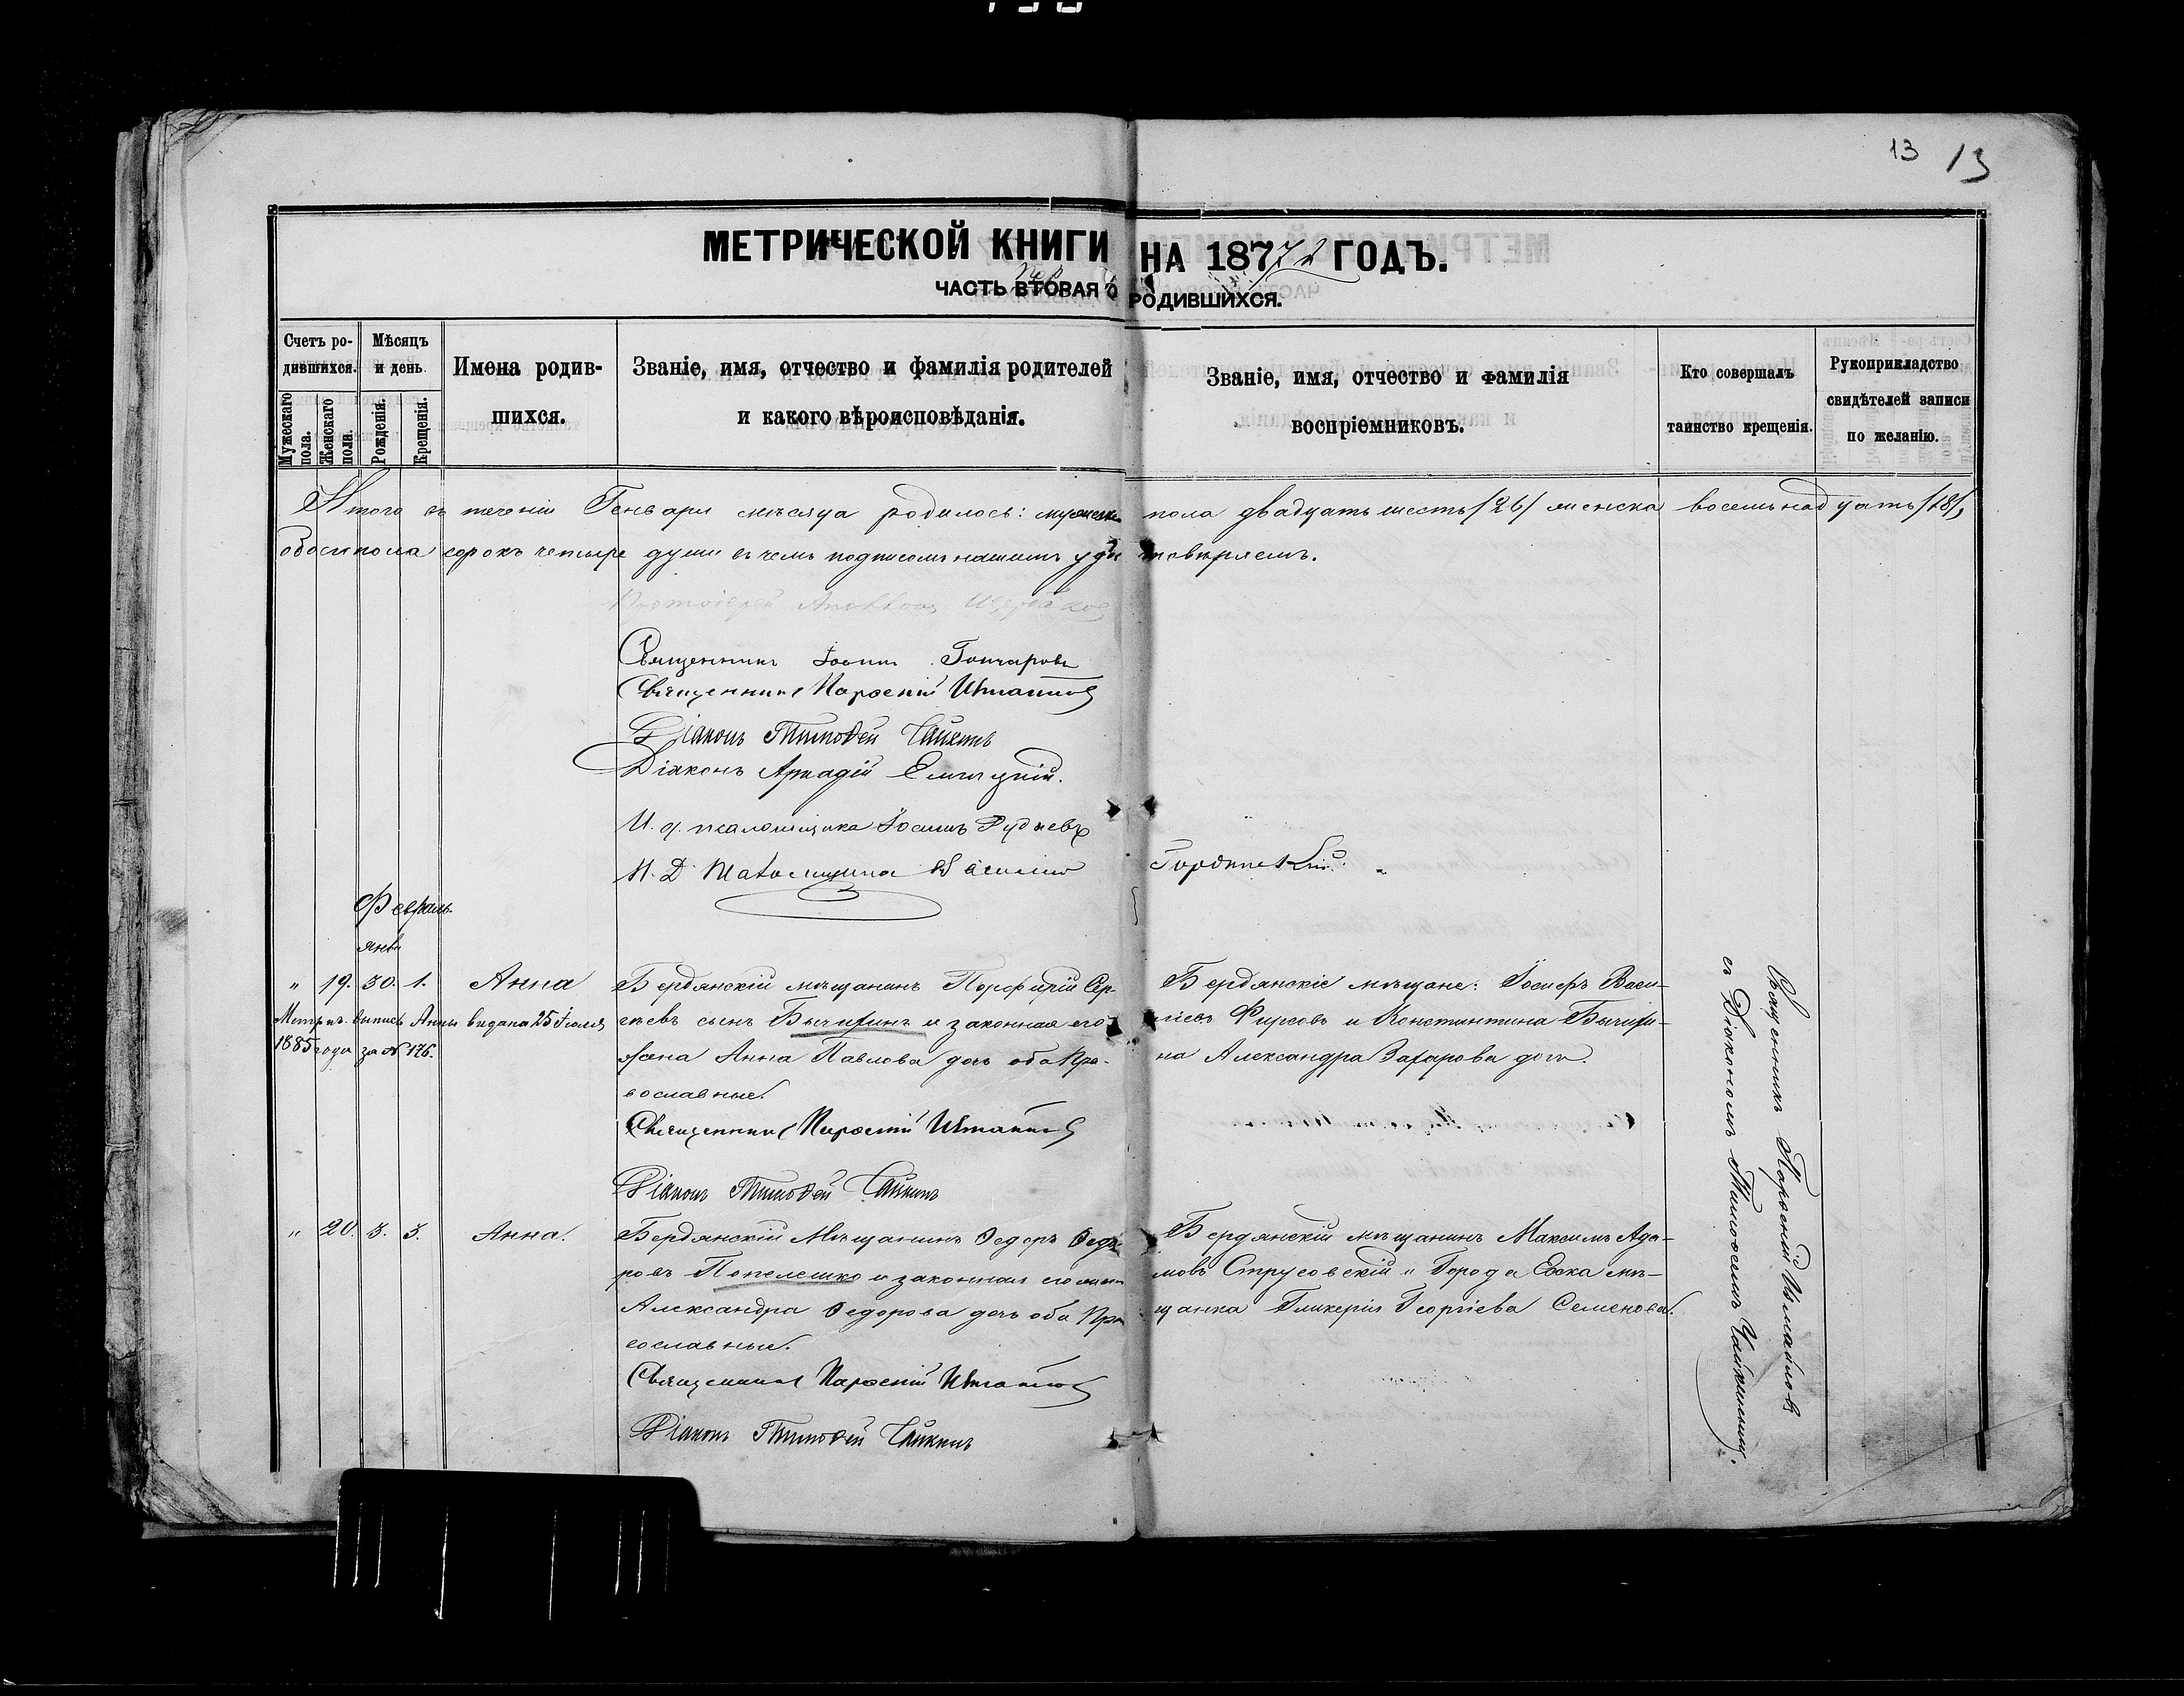 13 13
МЕТРИЧЕСКОЙ КНИГИ НА 1872 ГОДЪ.
ЧАСТЬ ВТОРАЯ О РОДИВШИХСЯ.
Счетъ родившихся.
Мужескаго пола.
Женскаго пола.
Мѣсяцъ и день
Рожденія.
Крещенія.
Имена родившихся.
Званіе, имя, отчество и фамилія родителей
и какого вѣроисповѣданія.
Званіе, имя, отчество и фамилія
воспріемниковъ.
Кто совершалъ
таинство крещенія.
Рукоприкладство
свидѣтелей записи
по желанію.
Итого въ теченіи Генваря мѣсяца родилось: мужеска пола двадцать шесть /26/ женска восемьнадцать /18/,
обоего пола сорокъ четыре души въ чемъ подписомъ нашимъ удостовѣряемъ.
Протоіерей
Священникъ Іоаннъ Гончаровъ
Священникъ Парѳеній
Діаконъ Тимоѳей Чайкинъ
Діаконъ Аркадій
И. д. псаломщика Іоаннъ
И. Д. Псаломщика Василій
Февраль.
янв.
" 19. 30. 1. Анна Бердянскій мѣщанинъ Порфирій Сер- Бердянскіе мѣщане: Іосифъ Васи-
Метрич. выпись Анны видана 25 Іюля гѣевъ сынъ Бычихинъ и законная его ліевъ Фирсовъ и Константина Бычихи-
1885 года за № 176. жена Анна Павлова дочь оба Пра- на Александра Захарова дочь.
вославные.
Священникъ Парѳеній
Діаконъ Тимоѳей Чайкинъ
" 20. 3. 3. Анна. Бердянскій Мѣщанинъ Ѳедоръ Ѳедо- Бердянскій мѣщанинъ Максимъ Ада-
ровъ Попелешко и законная его жена мовъ Струсовскій и Города Ейска мѣ-
Александра Ѳедорова дочь оба Пра- щанка Гликерія Георгіева Семенова.
вославные.
Священникъ Парѳеній
Діаконъ Тимоѳей Чайкинъ
Священникъ Парѳеній
съ Діакономъ Тимоѳеемъ Чайкинымъ.